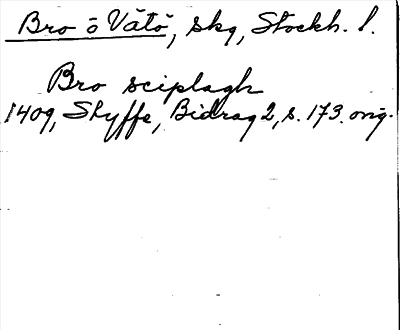 Bro o Vätö, skg, Stockh. l.
Bro sciplagh
1409, Styffe, Bidrag 2, s. 173. orig.